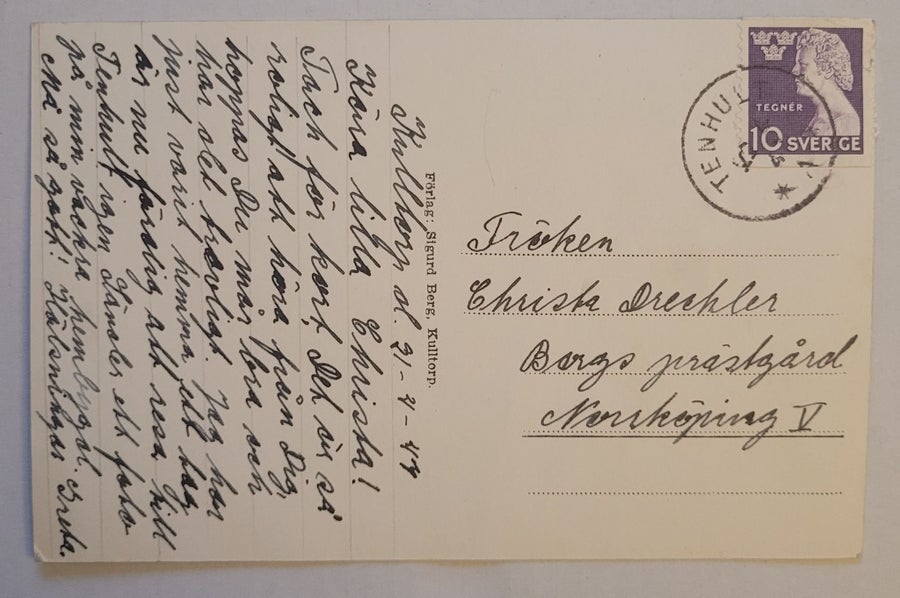 Kulltorp d. 21-4-47
Kära lilla Christa!
Tack för kort. Det är så
roligt att höra från Dig,
hoppas Du mår bra och
har det trevligt. Jag har
just varit hemma ett tag
är nu färdig att resa till
Tenhult igen. Sänder ett foto
på min vackra hembygd.
Må så gott! Hälsningar Greta.
Förlag: Sigurd Berg, Kulltorp.
TEGNÉR
10 SVERIGE
TENHULT
Fröken
Christa Drechler
Borgs prästgård
Norrköping V